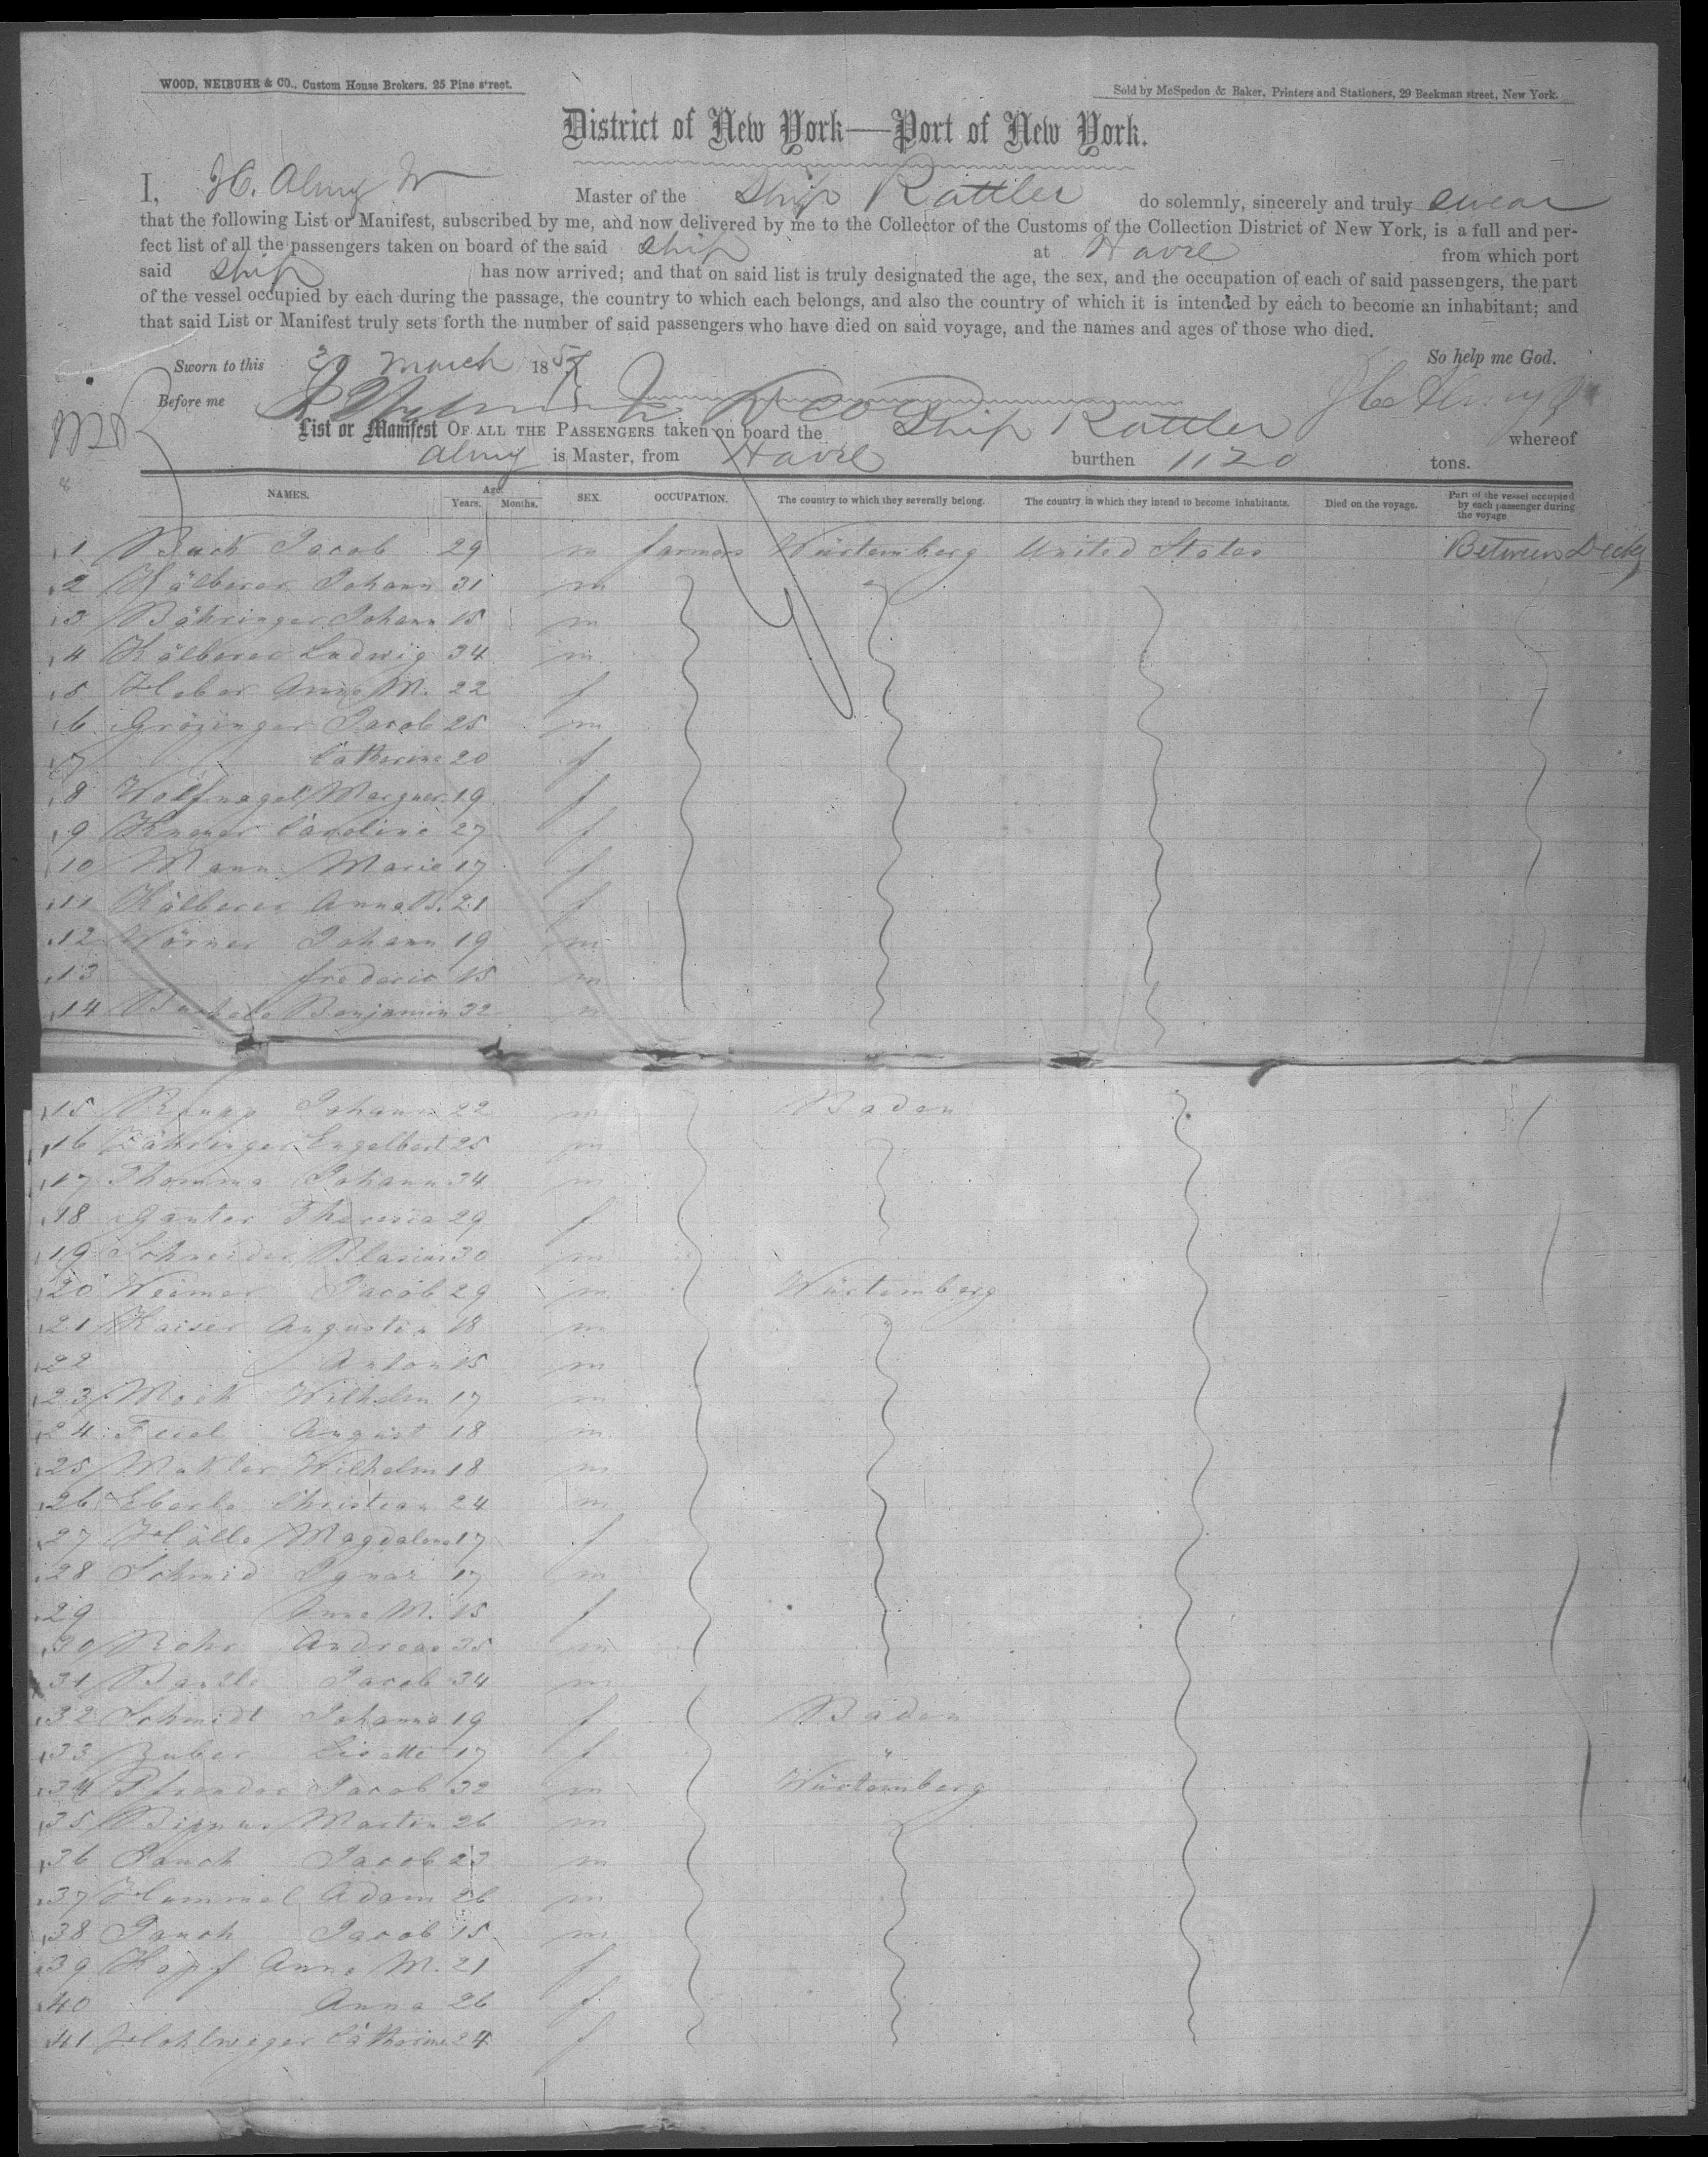 WOOD, NEIBUHR & CO., Custom House Brokers. 25 Pine street.
Sold by McSpedon & Baker, Printers and Stationers, 29 Beekman street, New York.
District of New York—Port of New York.
I, H. Almy Jr Master of the Ship Rattler do solemnly, sincerely and truly swear
that the following List or Manifest, subscribed by me, and now delivered by me to the Collector of the Customs of the Collection District of New York, is a full and per-
fect list of all the passengers taken on board of the said Ship at Havre from which port
said Ship has now arrived; and that on said list is truly designated the age, the sex, and the occupation of each of said passengers, the part
of the vessel occupied by each during the passage, the country to which each belongs, and also the country of which it is intended by each to become an inhabitant; and
that said List or Manifest truly sets forth the number of said passengers who have died on said voyage, and the names and ages of those who died.
Sworn to this March 185 So help me God.
Before me
List or Manifest OF ALL THE PASSENGERS taken on board the Ship Rattler whereof
Almy is Master, from Havre burthen 1120 tons.
NAMES. Age. Years. Months. SEX. OCCUPATION. The country to which they severally belong. The country in which they intend to become inhabitants. Died on the voyage. Part of the vessel occupied by each passenger during the voyage
1 Buck Jacob 29 m farmers Würtemberg United States Between Decks
2 Kälberer Johann 31 m "
3 Bähringer Johann 15 m
4 Kälberer Ludwig 34 m
5 Heber Anna M. 22 f
6 Grözinger Jacob 25 m
7 Catherine 20 f
8 Wolfnagel Marguer. 19 f
9 Knauer Caroline 27 f
10 Mann Marie 17 f
11 Kälberer Anna B. 21 f
12 Wörner Johann 19 m
13 frederic 15 m
14 Benjamin 32 m
15 Johann 22 m Baden
16 Zähringer Engelbert 25 m
17 Thomma Johann 34 m
18 Ganter Theresia 29 f
19 Schneider Blasius 30 m
20 Weimer Jacob 29 m Würtemberg
21 Kaiser Augustin 18 m "
22 Anton 15 m
23 Mock Wilhelm 17 m
24 August 18 m
25 Wilhelm 18 m
26 Eberle Christian 24 m
27 Hälle Magdalena 17 f
28 Schmid Ignaz 17 m
29 Anna M. 15 f
30 Rohr Andreas 35 m
31 Jacob 34 m
32 Schmidt Johanna 19 f Baden
33 Zuber Lisette 17 f "
34 Pfrender Jacob 32 m Würtemberg
35 Bippus Martin 26 m
36 Jauch Jacob 23 m
37 Hummel Adam 26 m
38 Jauch Jacob 15 m
39 Kopf Anna M. 21 f
40 Anna 26 f
41 Hohlweger Catherine 24 f